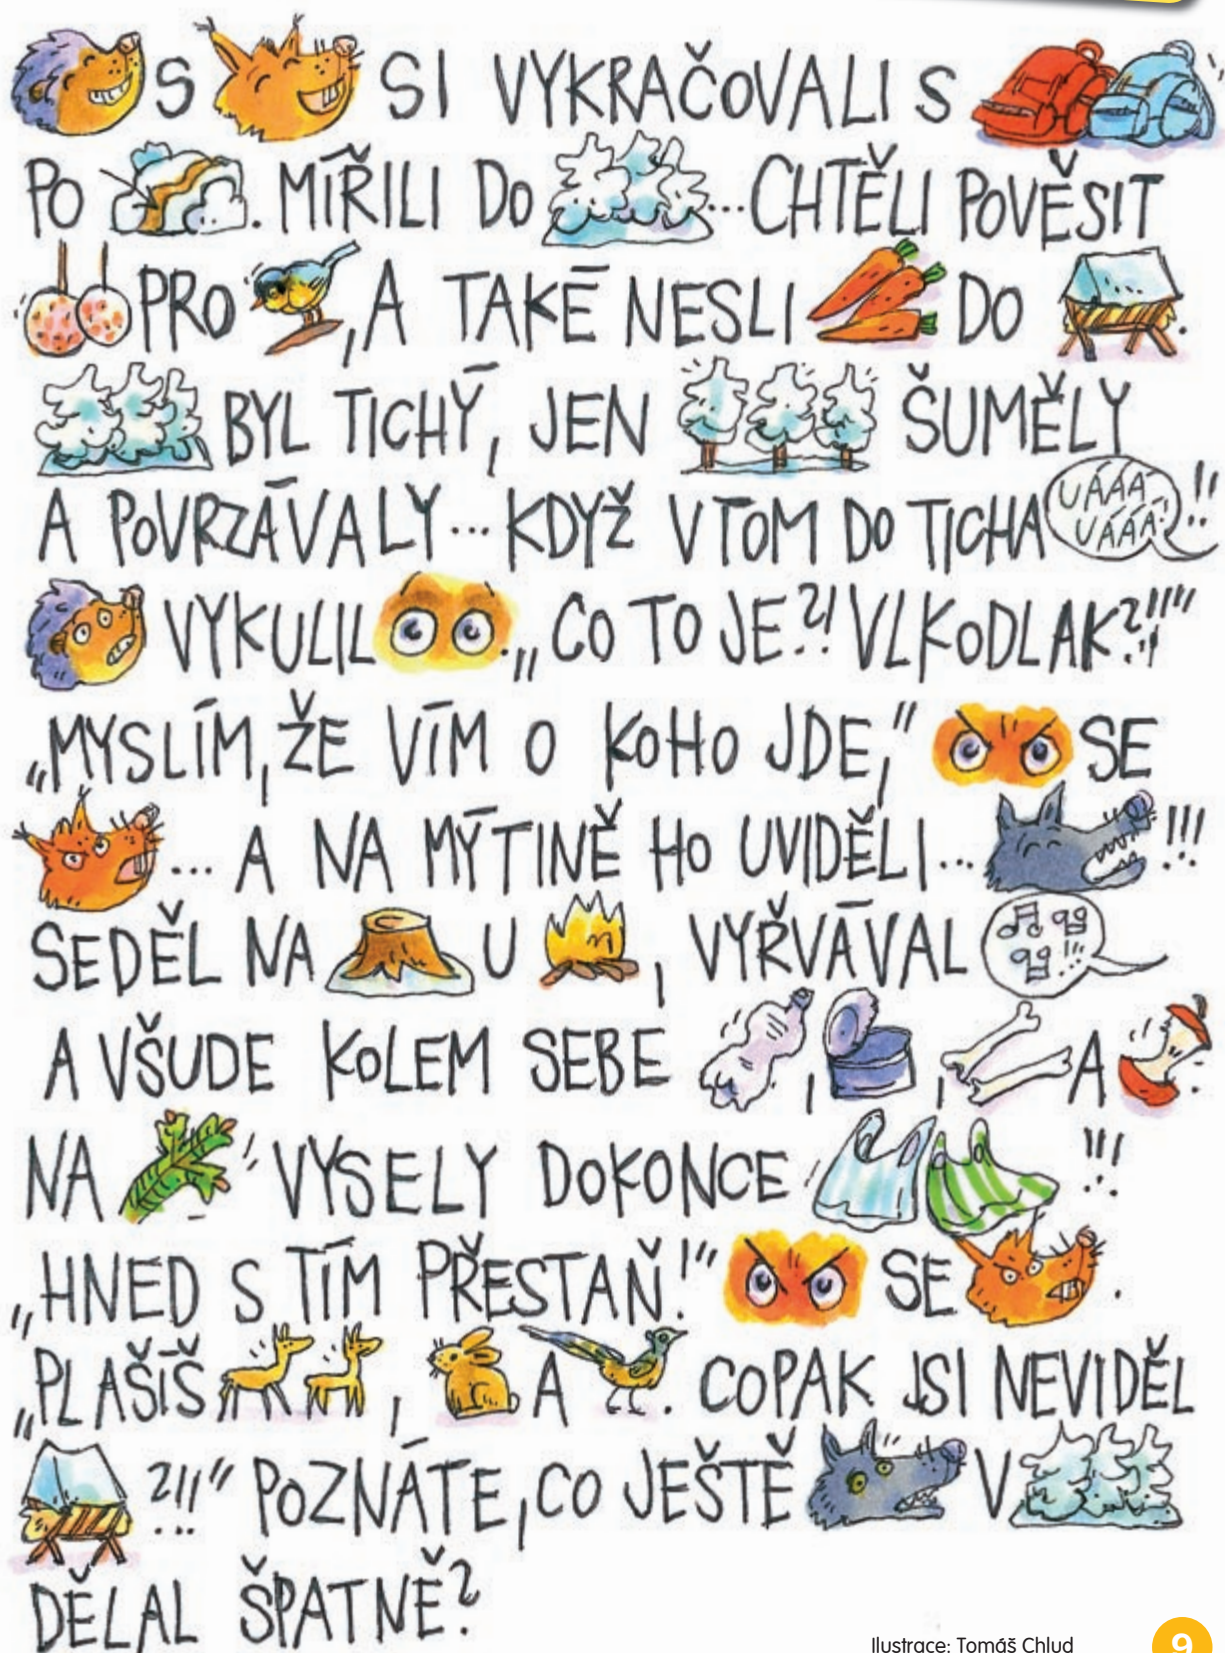 S SI VYKRAČOVALI S
PO . MÍŘILI DO ...CHTĚLI POVĚSIT
PRO , A TAKÉ NESLI DO .
BYL TICHÝ, JEN ŠUMĚLY
A POVRZÁVALY... KDYŽ VTOM DO TICHA UÁÁÁ UÁÁÁ !!
VYKULIL . „CO TO JE?! VLKODLAK?!!"
„MYSLÍM, ŽE VÍM O KOHO JDE," SE
... A NA MÝTINĚ HO UVIDĚLI... !!!
SEDĚL NA U , VYŘVÁVAL !!!
A VŠUDE KOLEM SEBE , , A .
NA VYSELY DOKONCE !!!
„HNED S TÍM PŘESTAŇ!" SE .
„PLAŠÍŠ , A . COPAK JSI NEVIDĚL
?!!" POZNÁTE, CO JEŠTĚ V
DĚLAL ŠPATNĚ?
Ilustrace: Tomáš Chlud 9